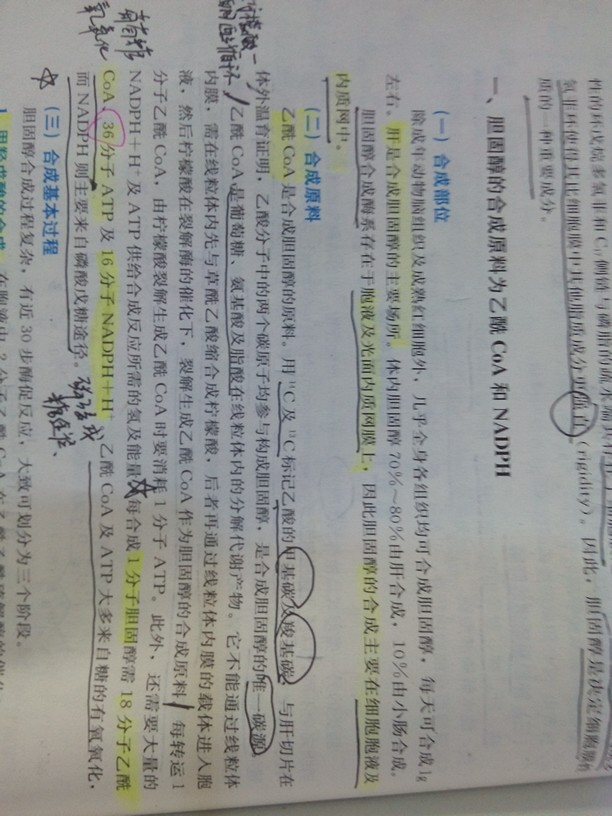 性的环戊烷多氢菲和C₁₇侧链与磷脂的疏水
氢菲环使得其比细胞膜中其他脂质成分更强直(rigidity)。因此，胆固醇是决定细胞膜性
质的一种重要成分。
一、胆固醇的合成原料为乙酰 CoA 和 NADPH
(一) 合成部位
除成年动物脑组织及成熟红细胞外，几乎全身各组织均可合成胆固醇，每天可合成1g
左右。肝是合成胆固醇的主要场所。体内胆固醇70%～80%由肝合成，10%由小肠合成。
胆固醇合成酶系存在于胞液及光面内质网膜上，因此胆固醇的合成主要在细胞胞液及
内质网中。
(二) 合成原料
乙酰 CoA 是合成胆固醇的原料。用¹⁴C及¹³C标记乙酸的甲基碳及羧基碳，与肝切片在
体外温育证明，乙酸分子中的两个碳原子均参与构成胆固醇，是合成胆固醇的唯一碳源
乙酰 CoA 是葡萄糖、氨基酸及脂酸在线粒体内的分解代谢产物。它不能通过线粒体
内膜，需在线粒体内先与草酰乙酸缩合成柠檬酸，后者再通过线粒体内膜的载体进入胞
液，然后柠檬酸在裂解酶的催化下，裂解生成乙酰 CoA 作为胆固醇的合成原料 每转运1
分子乙酰 CoA，由柠檬酸裂解生成乙酰 CoA 时要消耗1分子 ATP。此外，还需要大量的
NADPH＋H⁺及 ATP 供给合成反应所需的氢及能量 每合成1分子胆固醇需18分子乙酰
CoA、36分子 ATP 及16分子 NADPH＋H⁺ 乙酰 CoA 及 ATP 大多来自糖的有氧氧化，
而 NADPH 则主要来自磷酸戊糖途径。
(三) 合成基本过程
胆固醇合成过程复杂，有近30步酶促反应，大致可划分为三个阶段。
葡萄糖
有氧氧化